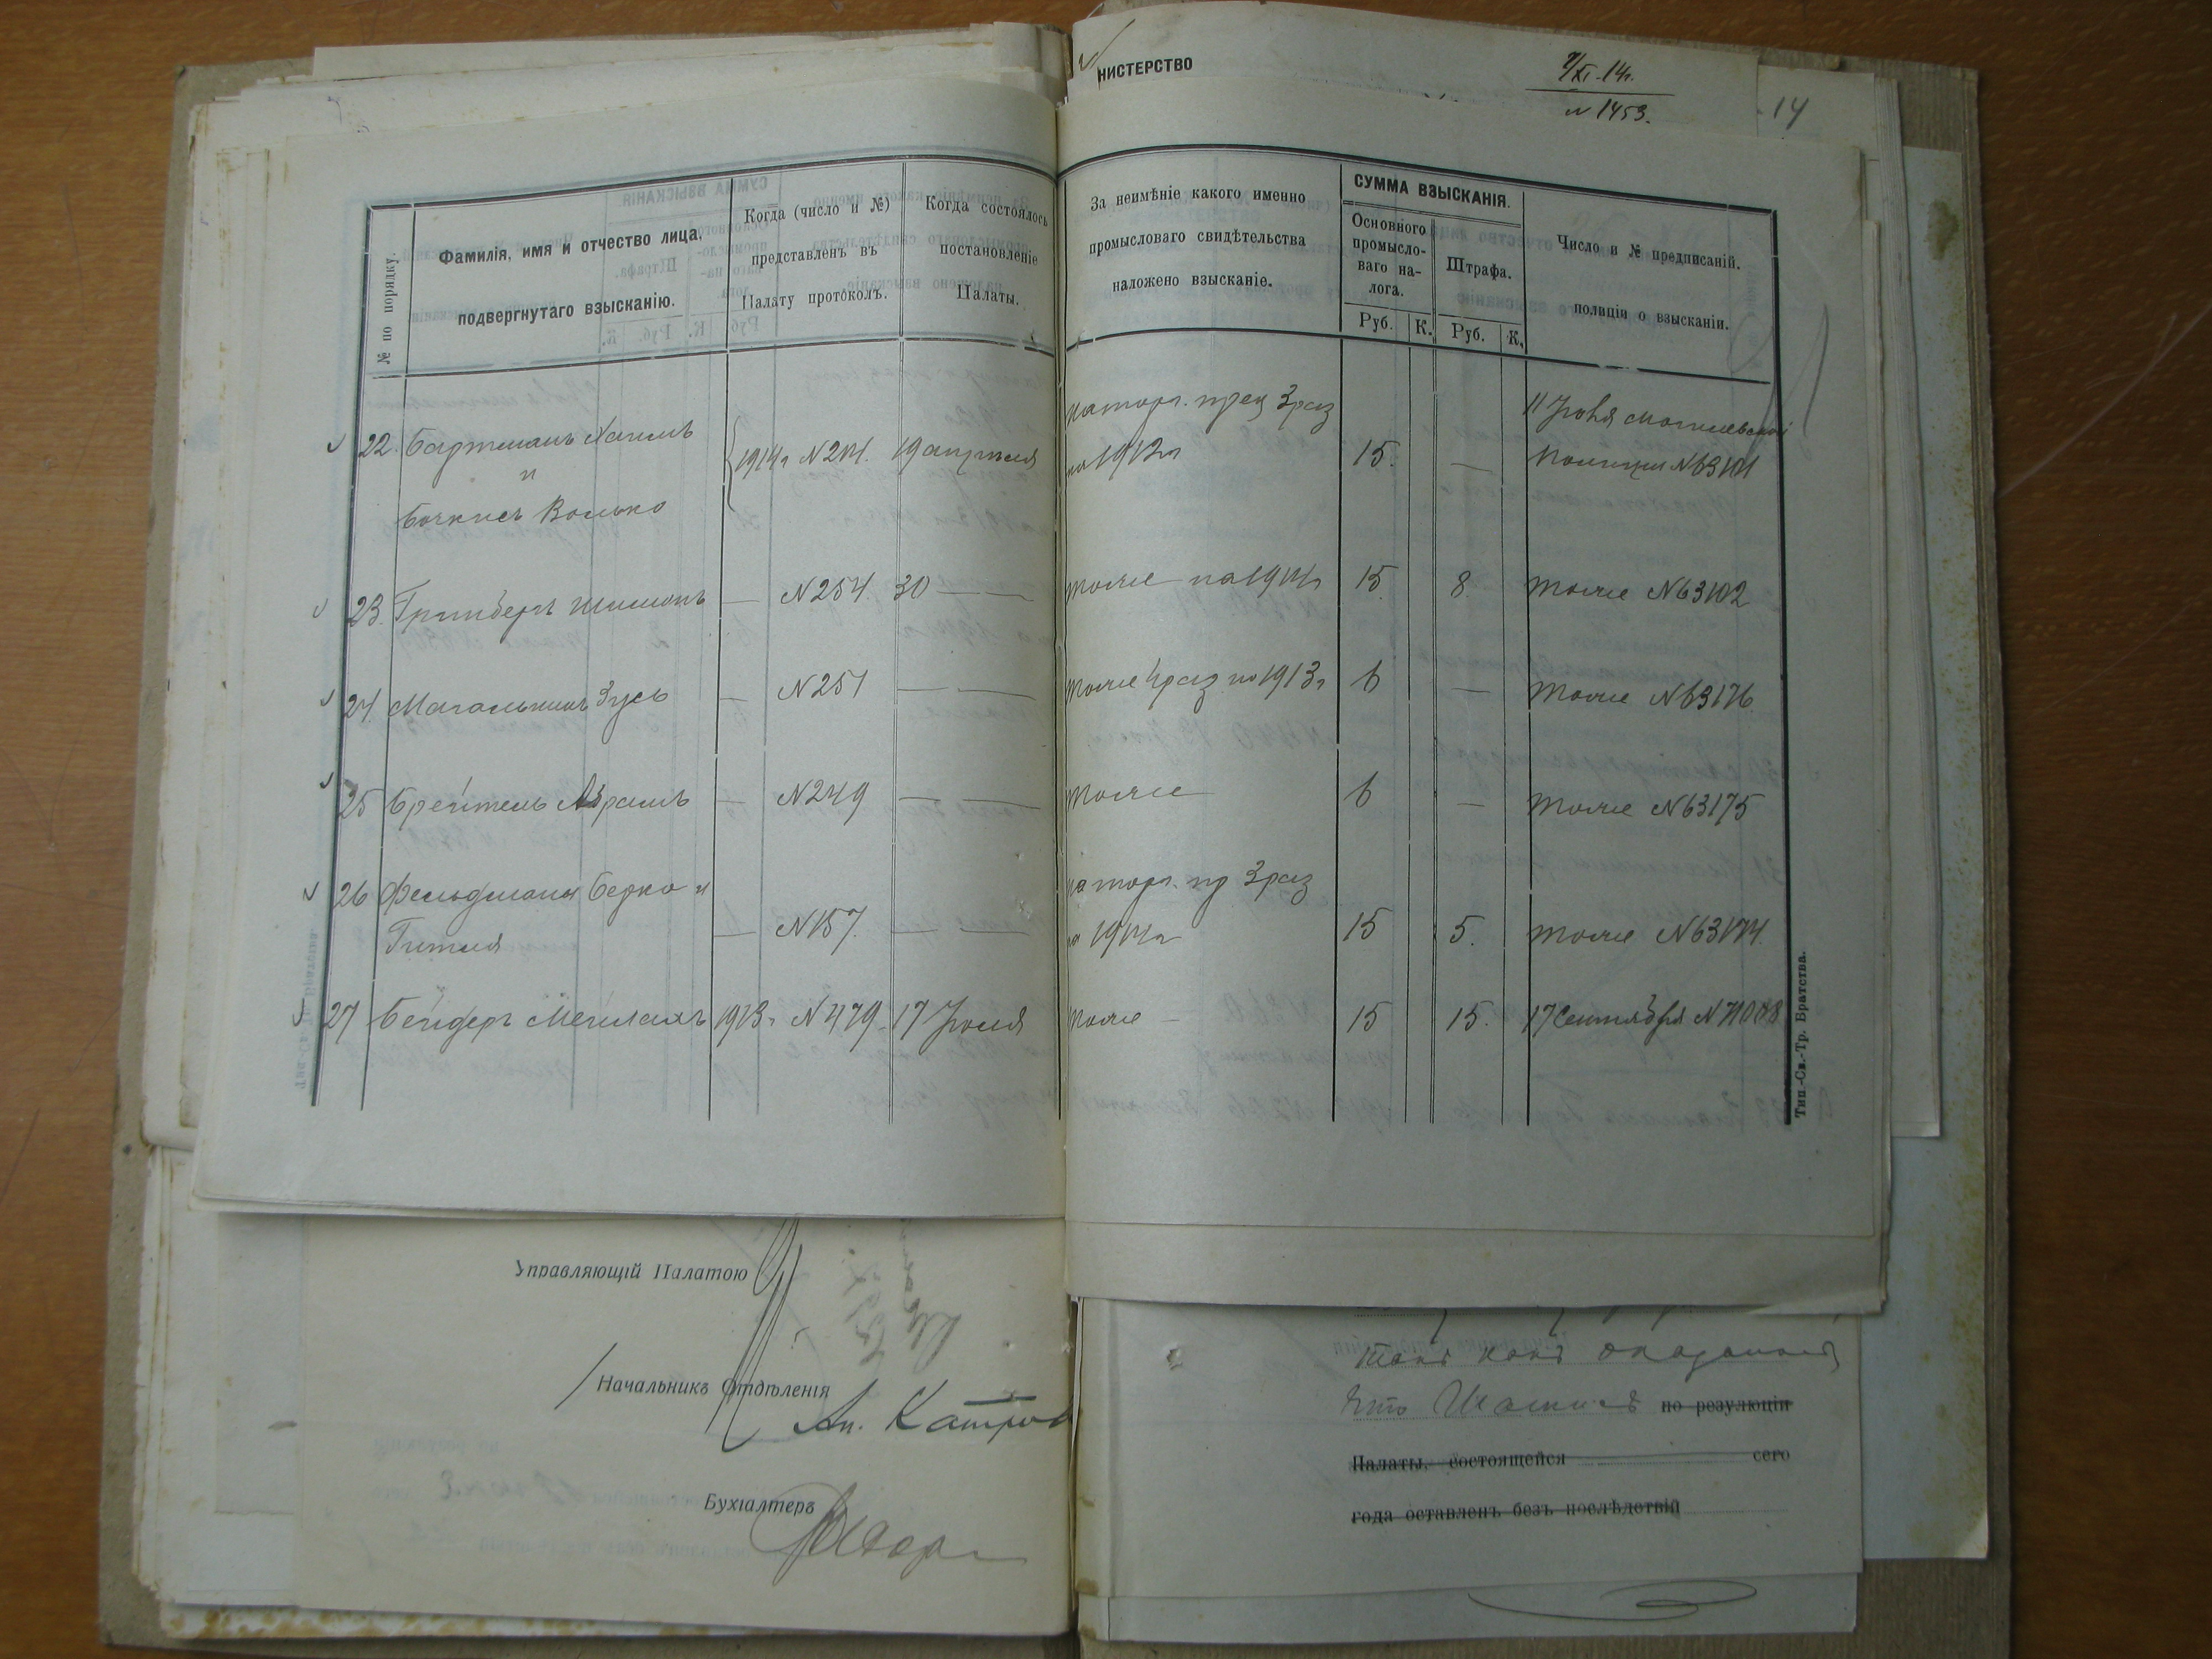 НИСТЕРСТВО
9/XI-14г.
N 1453.
14
№ по порядку.
Фамилія, имя и отчество лица,
подвергнутаго взысканію.
Когда (число и №)
представленъ въ
Палату протоколъ.
Когда состоялось
постановленіе
Палаты.
За неимѣніе какого именно
промысловаго свидѣтельства
наложено взысканіе.
СУММА ВЗЫСКАНІЯ.
Основного
промысло-
ваго на-
лога.
Штрафа.
Руб. К. Руб. К.
Число и № предписаній.
полиціи о взысканіи.
22. Бартманъ Хаимъ
и
Бочкисъ Волько
1914г N 214. 19 апреля
на торг. пред 3 раз
на 1912г
15. —
11 Іюня Могилевской
Полиціи N 63101
23. Гринбергъ Шимонъ — N 254. 30 — — тоже на 1914г 15. 8. тоже N 63102
24 Магалькинъ Зусь — N 251 — — тоже 4 раз на 1913г 6 — тоже N 63176.
25 Брейтель Абрамъ — N 249 — — тоже — 6 — тоже N 63175
26 Фельдманы Берко и
Гитля — N 157. — —
на торг. пр 3 раз
на 1914г 15 5. тоже N 63174.
27 Бейдеръ Мейлахъ 1913г N 479 17 Іюля тоже — 15 15. 17 Сентября N 71008
Тип.-Св.-Тр. Братства.
Управляющій Палатою
Начальникъ Отдѣленія
Бухгалтеръ
такъ какъ
что по резулюціи
Палаты, состоящейся сего
года оставленъ безъ послѣдствій